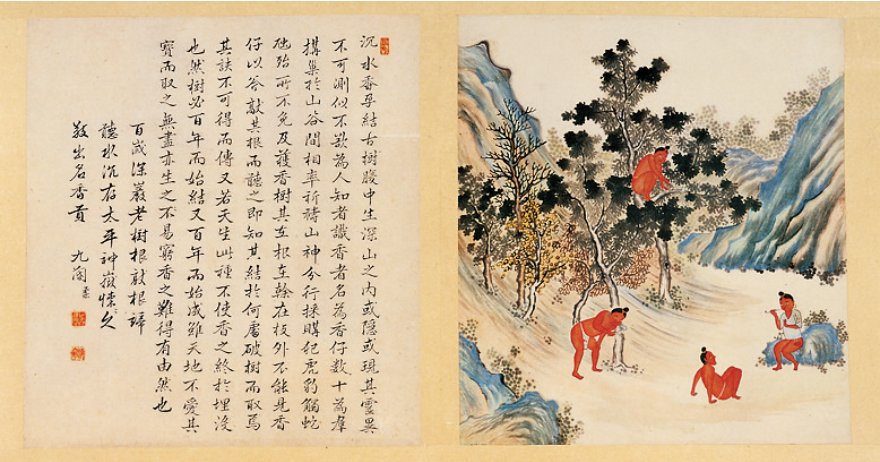 沉水香孕結古樹腹中生深山之內或隱或現其靈異
不可測似不欲為人知者識香者名為香仔數十為羣
構巢於山谷間相率祈禱山神分行採購犯虎豹觸蛇
虺殆所不免及獲香樹其在根在榦在枝外不能見香
仔以斧敲其根而聽之即知其結於何處破樹而取焉
其訣不可得而傳又若天生此種不使香之終於埋沒
也然樹必百年而始結又百年而始成雖天地不愛其
寶而取之無盡亦生之不易窮香之難得有由然也
百歲深巖老樹根敲根諦
聽水沉存太平神嶽懷久
敬出名香貢 九閽